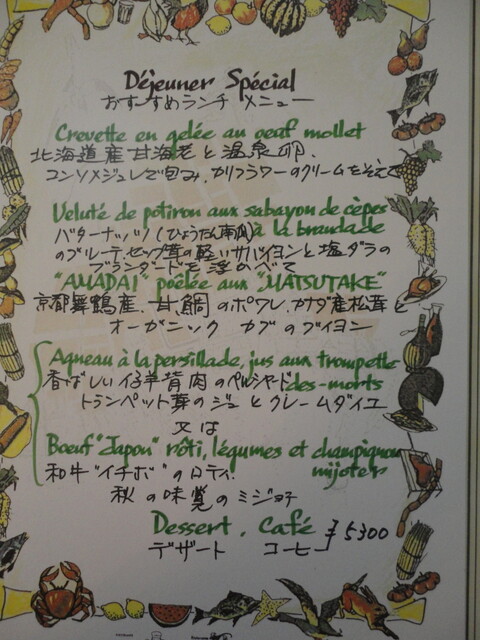 Déjeuner Spécial
おすすめランチ メニュー
Crevette en gelée au oeuf mollet
北海道産甘海老と温泉卵、
コンソメジュレで包み、カリフラワーのクリームをそえて
Veluté de potiron aux sabayon de cèpes
バターナッツ（ひょうたん南瓜） à la brandade
のブルーテ、セップ茸の軽いサバイヨンと塩ダラの
ブランダードを浮のべて
"AMADAI" poêlée aux "MATSUTAKE"
京都舞鶴産、甘鯛のポワレ、カナダ産松茸と
オーガニック カブのブイヨン
Agneau à la persillade, jus aux trompette
香ばしい仔羊背肉のペルシヤード des-morts
トランペット茸のジュとクレームダイユ
又は
Boeuf "Japon" rôti, légumes et champignon
和牛"イチボ"のロティ、 mijoter
秋の味覚のミジョテ
Dessert. Café
デザート コーヒー ¥5300